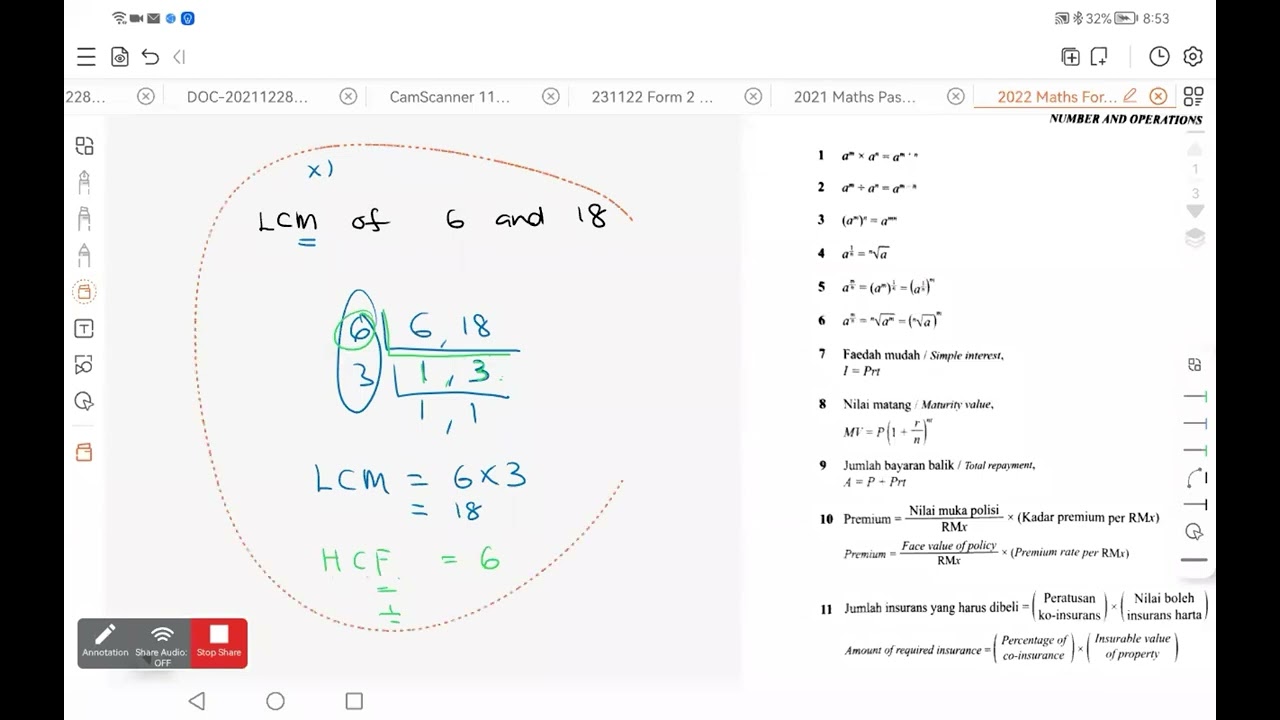 32% 8:53
228... DOC-20211228... CamScanner 11... 231122 Form 2 ... 2021 Maths Pas... 2022 Maths For...
x)
LCM of 6 and 18
6 6, 18
3 1, 3
1, 1
LCM = 6 x 3
= 18
HCF = 6
÷
Annotation Share Audio: OFF Stop Share
NUMBER AND OPERATIONS
1 aᵐ × aⁿ = aᵐ⁺ⁿ
2 aᵐ ÷ aⁿ = aᵐ⁻ⁿ
3 (aᵐ)ⁿ = aᵐⁿ
4 a^(1/n) = ⁿ√a
5 a^(m/n) = (aᵐ)^(1/n) = (a^(1/n))ᵐ
6 a^(m/n) = ⁿ√aᵐ = (ⁿ√a)ᵐ
7 Faedah mudah / Simple interest,
I = Prt
8 Nilai matang / Maturity value,
MV = P(1 + r/n)ⁿᵗ
9 Jumlah bayaran balik / Total repayment,
A = P + Prt
10 Premium = Nilai muka polisi / RMx × (Kadar premium per RMx)
Premium = Face value of policy / RMx × (Premium rate per RMx)
11 Jumlah insurans yang harus dibeli = (Peratusan ko-insurans) × (Nilai boleh insurans harta)
Amount of required insurance = (Percentage of co-insurance) × (Insurable value of property)
1
3